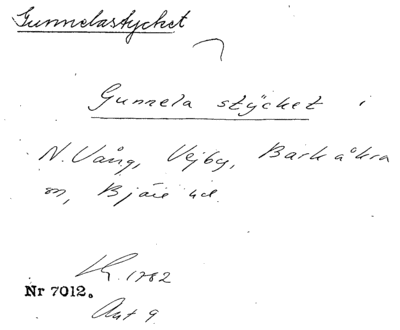 Gunnelastycket
Gunnela stycket i
N. Vång, Vejby, Barkåkra
sn, Bjäre hd.
Lh. 1782
Nr 7012.
Akt 9